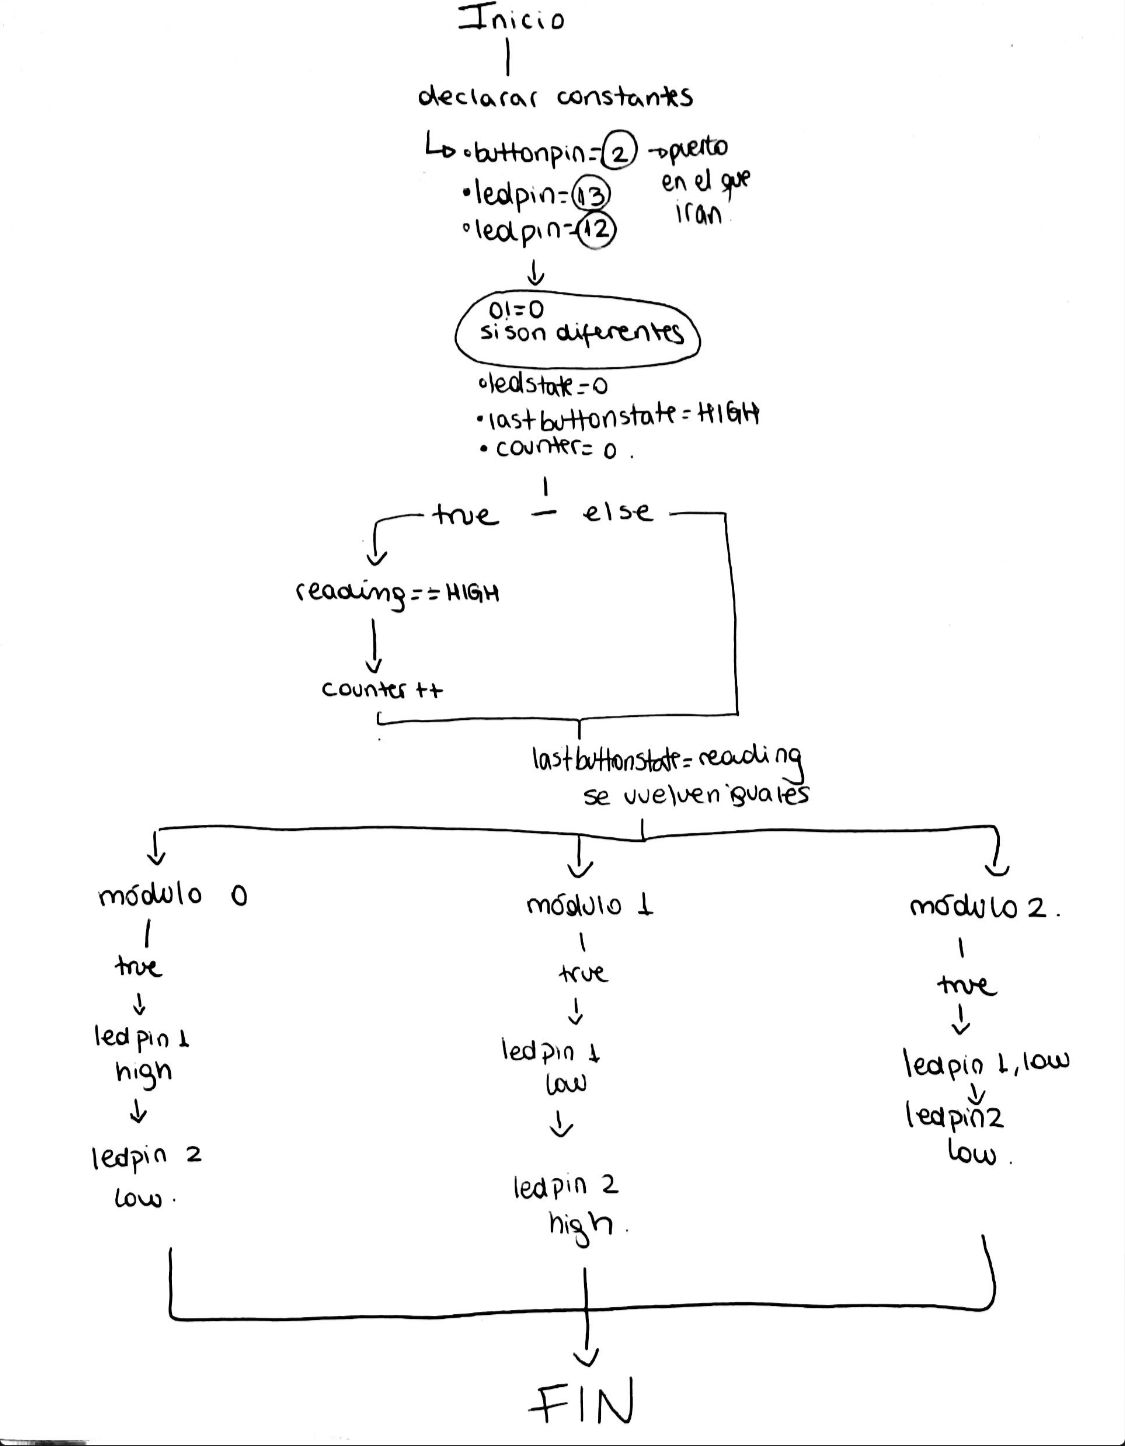 Inicio
declarar constantes
•buttonpin=2 →puerto
en el que
iran.
•ledpin=13
•ledpin=12
0!=0
si son diferentes
•ledstate=0
•lastbuttonstate=HIGH
•counter=0.
true — else
reading==HIGH
counter++
lastbuttonstate=reading
se vuelven iguales
módulo 0
true
ledpin 1
high
ledpin 2
low.
módulo 1
true
ledpin 1
low
ledpin 2
high.
módulo 2.
true
ledpin 1, low
ledpin 2
low.
FIN